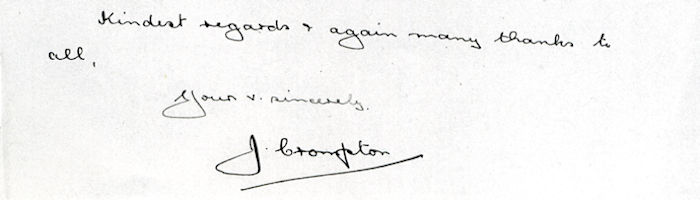 Kindest regards & again many thanks to
all,
Yours v. sincerely.
J. Crompton